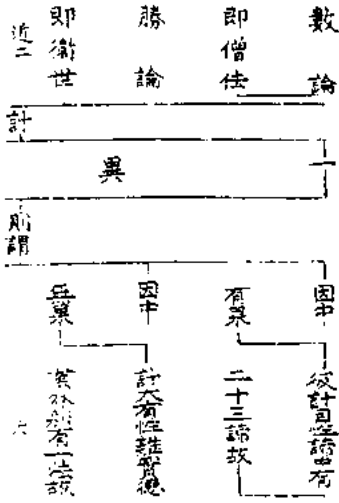 數論
即僧佉
勝論
即衛世
近二
計
一
異
則謂
因中
有果
因中
無果
彼計自性諦中有
二十三諦故
計大有性離實德
業外別有一法故
六